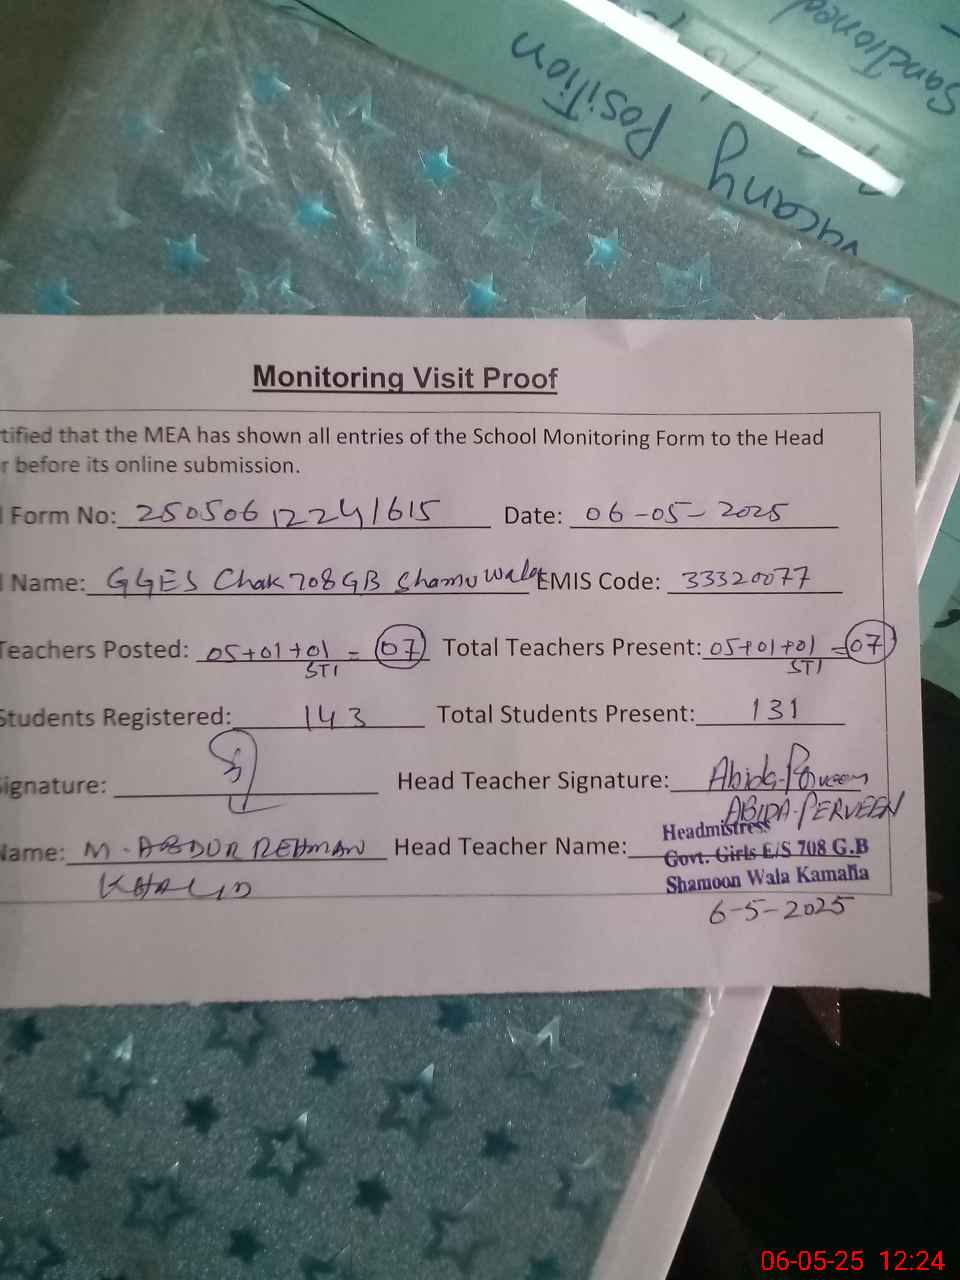 Sanctioned
Vacany Position
Monitoring Visit Proof
tified that the MEA has shown all entries of the School Monitoring Form to the Head
r before its online submission.
Form No: 250506 12241615 Date: 06-05-2025
Name: GGES Chak 708 GB Shamu wala EMIS Code: 33320077
Teachers Posted: 05+01+01 = 07 Total Teachers Present: 05+01+01 = 07
STI STI
Students Registered: 143 Total Students Present: 131
ignature: Head Teacher Signature: Abida Perveen
ABIDA PERVEEN
Name: M. ABDUR REHMAN Head Teacher Name: Headmistress
KHALID Govt. Girls E/S 708 G.B
Shamoon Wala Kamalia
6-5-2025
06-05-25 12:24